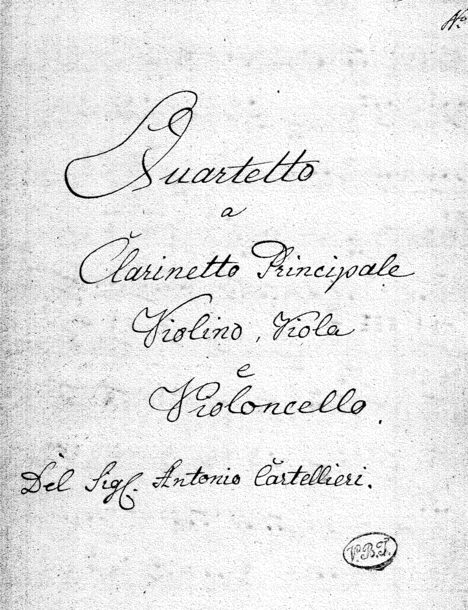 No
Quartetto
a
Clarinetto Principale
Violino, Viola
e
Violoncello.
Del Sigl. Antonio Cartellieri.
V.B.T.